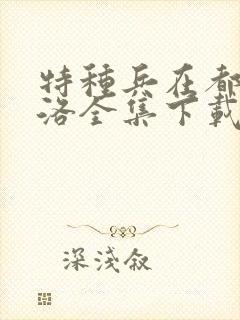 特種兵在都
洛全集下載
深淺叙